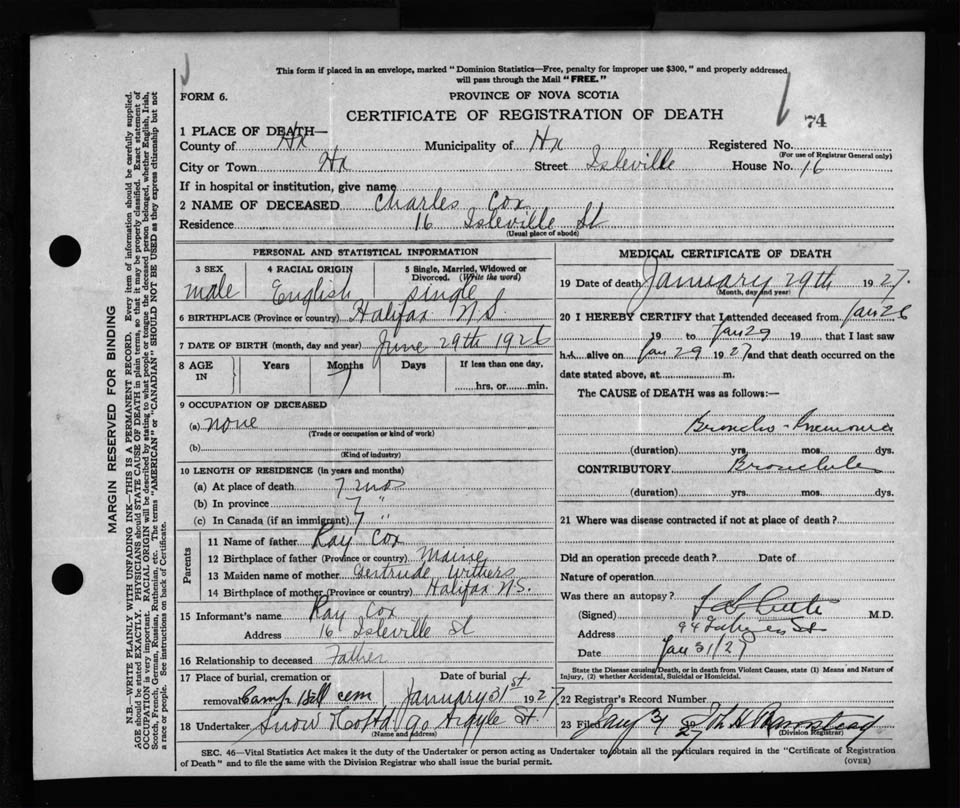 This form if placed in an envelope, marked "Dominion Statistics—Free, penalty for improper use $300," and properly addressed
will pass through the Mail "FREE."
FORM 6.
PROVINCE OF NOVA SCOTIA
CERTIFICATE OF REGISTRATION OF DEATH
74
1 PLACE OF DEATH—
County of Hx Municipality of Hx Registered No.
(For use of Registrar General only)
City or Town Hx Street Isleville House No. 16
If in hospital or institution, give name
2 NAME OF DECEASED Charles Cox
Residence 16 Isleville St
(Usual place of abode)
PERSONAL AND STATISTICAL INFORMATION
3 SEX 4 RACIAL ORIGIN 5 Single, Married, Widowed or Divorced. (Write the word)
male English single
6 BIRTHPLACE (Province or country) Halifax N.S.
7 DATE OF BIRTH (month, day and year) June 29th 1926
8 AGE IN Years Months Days If less than one day,
7 hrs. or min.
9 OCCUPATION OF DECEASED
(a) none
(Trade or occupation or kind of work)
(b)
(Kind of industry)
10 LENGTH OF RESIDENCE (in years and months)
(a) At place of death 7 mos
(b) In province 7 "
(c) In Canada (if an immigrant) 7 "
Parents
11 Name of father Ray Cox
12 Birthplace of father (Province or country) Maine
13 Maiden name of mother Gertrude Withers
14 Birthplace of mother (Province or country) Halifax N.S.
15 Informant's name Ray Cox
Address 16 Isleville St
16 Relationship to deceased Father
17 Place of burial, cremation or removal Date of burial
Camp Hill cem January 31st 1927
18 Undertaker Snow & Co Ltd 90 Argyle St.
(Name and address)
MEDICAL CERTIFICATE OF DEATH
19 Date of death January 29th 1927.
(Month, day and year)
20 I HEREBY CERTIFY that I attended deceased from Jan 26
19 to Jan 29 19 that I last saw
h alive on Jan 29 1927 and that death occurred on the
date stated above, at m.
The CAUSE of DEATH was as follows:—
Broncho-Pneumonia
(duration) yrs. mos. dys.
CONTRIBUTORY Bronchitis
(duration) yrs. mos. dys.
21 Where was disease contracted if not at place of death?
Did an operation precede death? Date of
Nature of operation
Was there an autopsy?
(Signed) M.D.
Address 94 St
Date Jan 31/27
State the Disease causing Death, or in death from Violent Causes, state (1) Means and Nature of
Injury, (2) whether Accidental, Suicidal or Homicidal.
22 Registrar's Record Number
23 Filed Jan 31 27
(Division Registrar)
SEC. 46—Vital Statistics Act makes it the duty of the Undertaker or person acting as Undertaker to obtain all the particulars required in the "Certificate of Registration
of Death" and to file the same with the Division Registrar who shall issue the burial permit.
(OVER)
MARGIN RESERVED FOR BINDING
N.B.—WRITE PLAINLY WITH UNFADING INK—THIS IS A PERMANENT RECORD. Every item of information should be carefully supplied.
AGE should be stated EXACTLY. PHYSICIANS should STATE CAUSE OF DEATH in plain terms, so that it may be properly classified. Exact statement of
OCCUPATION is very important. RACIAL ORIGIN will be described by stating to what people or tongue the deceased person belonged, whether English, Irish,
Scotch, French, German, Russian, Ruthenian, etc. The terms "AMERICAN" or "CANADIAN" SHOULD NOT BE USED as they express citizenship but not
a race or people. See instructions on back of Certificate.